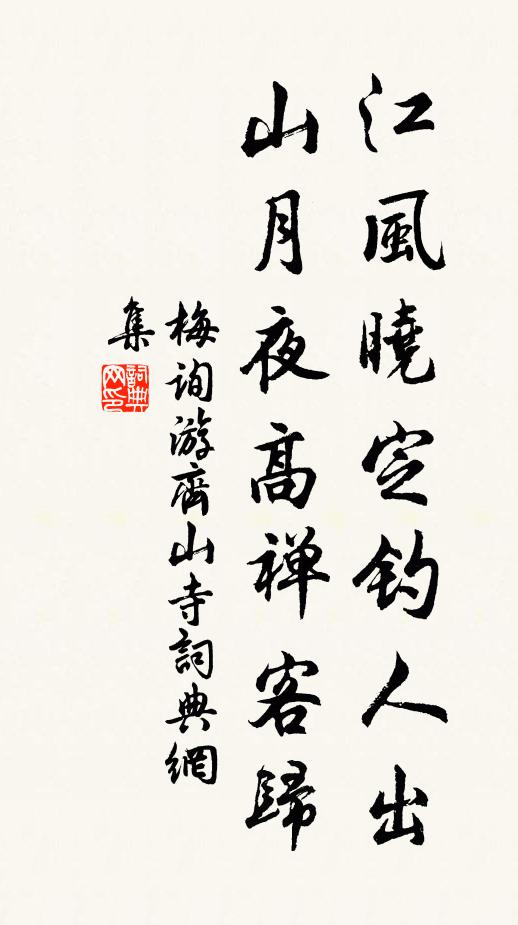 江風曉定釣人出
山月夜高禅客歸
梅询游齊山寺詞典網
集
詞典
网印